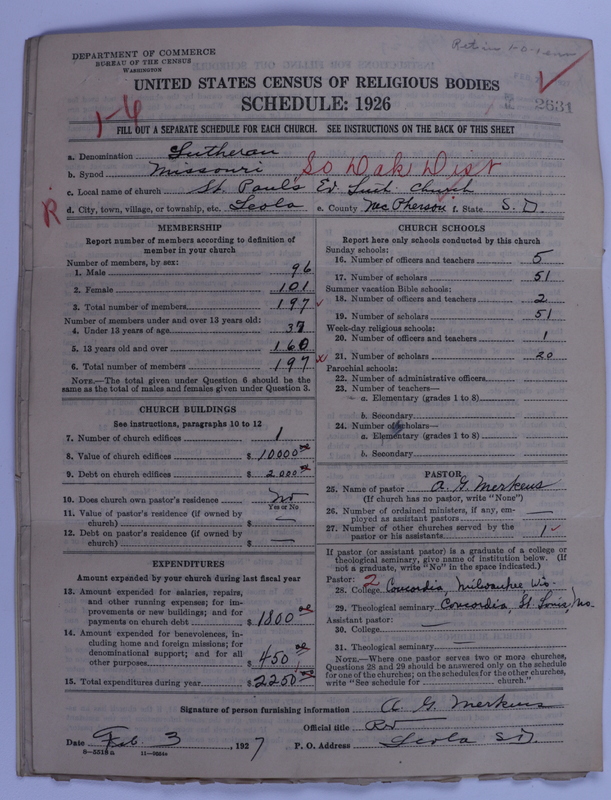 DEPARTMENT OF COMMERCE
BUREAU OF THE CENSUS
WASHINGTON
UNITED STATES CENSUS OF RELIGIOUS BODIES
SCHEDULE: 1926
2631
1-6
FILL OUT A SEPARATE SCHEDULE FOR EACH CHURCH. SEE INSTRUCTIONS ON THE BACK OF THIS SHEET
a. Denomination Lutheran
b. Synod Missouri So Dak Dist
c. Local name of church St. Pauls Ev. Luth. Church
d. City, town, village, or township, etc. Leola e. County McPherson f. State S. D.
R
MEMBERSHIP
Report number of members according to definition of
member in your church
Number of members, by sex:
1. Male 96
2. Female 101
3. Total number of members 197
Number of members under and over 13 years old:
4. Under 13 years of age 37
5. 13 years old and over 160
6. Total number of members 197
NOTE.—The total given under Question 6 should be the
same as the total of males and females given under Question 3.
CHURCH BUILDINGS
See instructions, paragraphs 10 to 12
7. Number of church edifices 1
8. Value of church edifices $ 10000 00
9. Debt on church edifices $ 2000 00
10. Does church own pastor's residence No
Yes or No
11. Value of pastor's residence (if owned by
church) $ —
12. Debt on pastor's residence (if owned by
church) $ —
EXPENDITURES
Amount expended by your church during last fiscal year
13. Amount expended for salaries, repairs,
and other running expenses; for im-
provements or new buildings; and for
payments on church debt $ 1800 00
14. Amount expended for benevolences, in-
cluding home and foreign missions; for
denominational support; and for all
other purposes $ 450 00
15. Total expenditures during year $ 2250 00
CHURCH SCHOOLS
Report here only schools conducted by this church
Sunday schools:
16. Number of officers and teachers 5
17. Number of scholars 51
Summer vacation Bible schools:
18. Number of officers and teachers 2
19. Number of scholars 51
Week-day religious schools:
20. Number of officers and teachers 1
21. Number of scholars 20
Parochial schools:
22. Number of administrative officers
23. Number of teachers—
a. Elementary (grades 1 to 8)
b. Secondary
24. Number of scholars—
a. Elementary (grades 1 to 8)
b. Secondary
PASTOR
25. Name of pastor A. G. Merkens
(If church has no pastor, write "None")
26. Number of ordained ministers, if any, em-
ployed as assistant pastors —
27. Number of other churches served by the
pastor or his assistants 1
If pastor (or assistant pastor) is a graduate of a college or
theological seminary, give name of institution below. (If
not a graduate, write "No" in the space indicated.)
Pastor: 2
28. College Concordia, Milwaukee Wis.
29. Theological seminary Concordia, St. Louis, Mo.
Assistant pastor:
30. College —
31. Theological seminary —
NOTE.—Where one pastor serves two or more churches,
Questions 28 and 29 should be answered only on the schedule
for one of the churches; on the schedules for the other churches,
write "See schedule for church."
Signature of person furnishing information A. G. Merkens
Official title Rev
Date Feb. 3, 1927 P. O. Address Leola S.D.